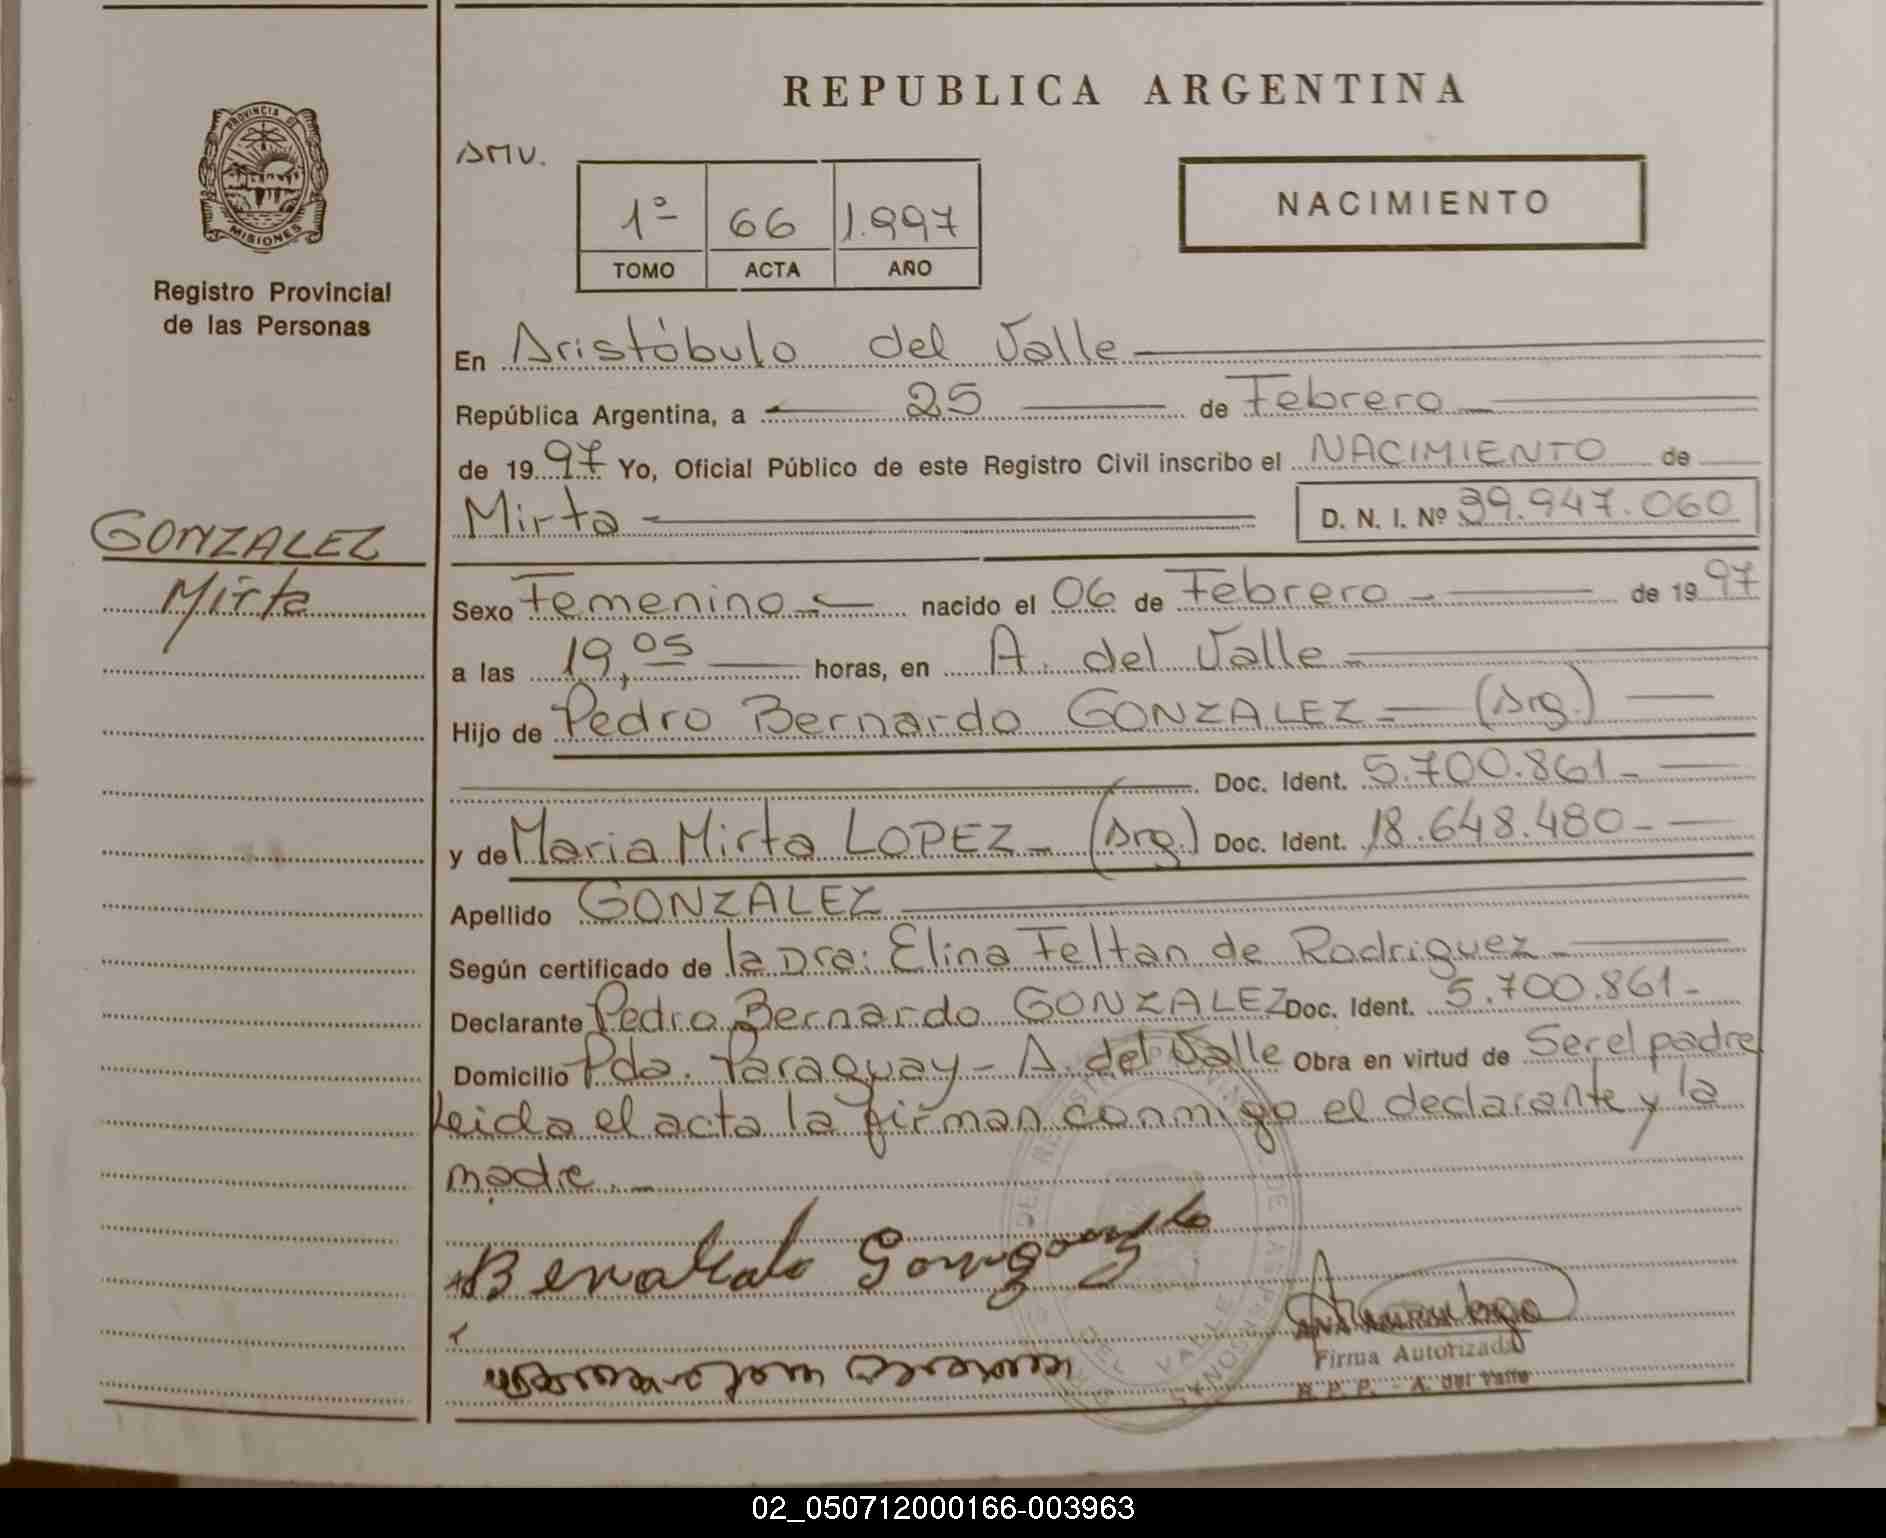 REPUBLICA ARGENTINA
PROVINCIA DE
MISIONES
Registro Provincial
de las Personas
AMV.
1º 66 1.997
TOMO ACTA AÑO
NACIMIENTO
GONZALEZ
Mirta
En Aristóbulo del Valle
República Argentina, a 25 de Febrero
de 1997 Yo, Oficial Público de este Registro Civil inscribo el NACIMIENTO de
Mirta D. N. I. Nº 39.947.060
Sexo Femenino nacido el 06 de Febrero de 1997
a las 19,05 horas, en A. del Valle
Hijo de Pedro Bernardo GONZALEZ (Arg.)
Doc. Ident. 5.700.861
y de Maria Mirta LOPEZ (Arg.) Doc. Ident. 18.648.480
Apellido GONZALEZ
Según certificado de la Dra: Elina Feltan de Rodriguez
Declarante Pedro Bernardo GONZALEZ Doc. Ident. 5.700.861
Domicilio Pda. Paraguay - A. del Valle Obra en virtud de Ser el padre
Leida el acta la firman conmigo el declarante y la
madre.
Firma Autorizada
R. P. P. - A. del Valle
DEL VALLE
DE LAS PERSONAS
02_050712000166-003963